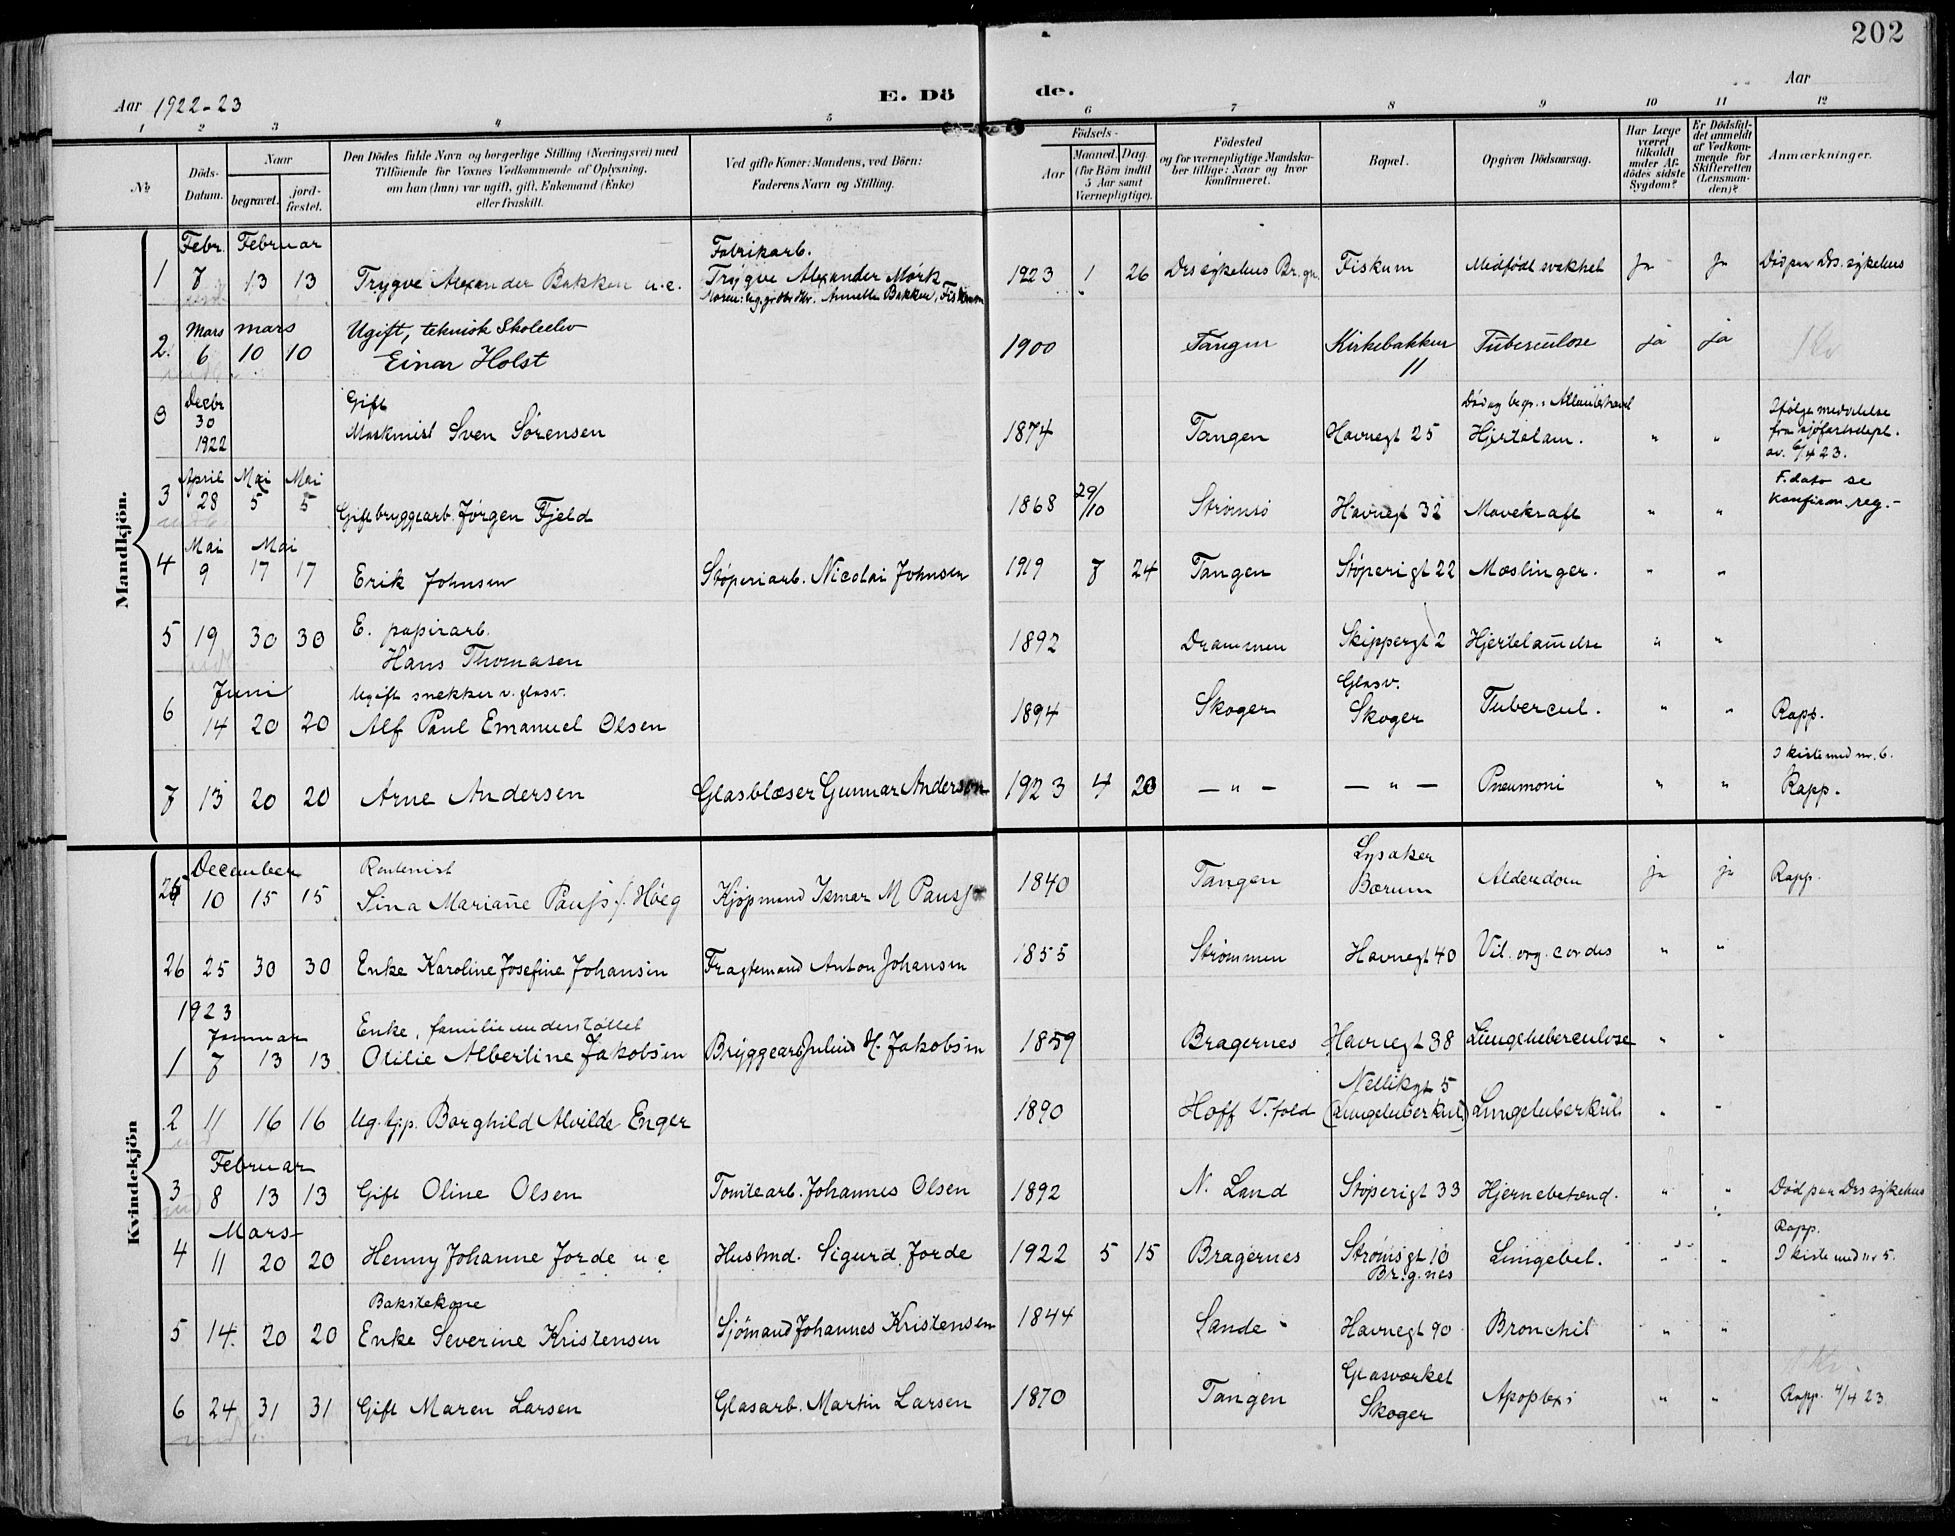 202
Aar 1922-23
E. Dö de.
Aar
1 2 3 4 5 6 7 8 9 10 11 12
№
Döds-Datum.
Naar
begravet.
jord-fæstet.
Den Dödes fulde Navn og borgerlige Stilling (Næringsvei) med Tilföiende for Voxnes Vedkommende af Oplysning, om han (hun) var ugift, gift, Enkemand (Enke) eller fraskilt.
Ved gifte Koner: Mandens, ved Börn: Faderens Navn og Stilling.
Födsels-
Aar
Maaned. Dag.
(for Börn indtil 5 Aar samt Værnepligtige).
Födested
og for værnepligtige Mandska-ber tillige: Naar og hvor konfirmeret.
Bopæl.
Opgiven Dödsaarsag.
Har Læge været tilkaldt under Af-dödes sidste Sygdom?
Er Dödsfal-det anmeldt af Vedkom-mende for Skifteretten (Lensman-den)?
Anmærkninger.
Mandkjön.
Febr. Februar
Fabrikarb.
1 7 13 13 Trygve Alexander Bakken u.e. Trygve Alexander Mørk 1923 1 26 Drs sykehus Br.gn. Fiskum Medfödt svakhet ja ja Död paa Drs. sykehus
Moren: ug. Annette Bakken, Fiskum
Mars mars Ugift, teknisk Skoleelev
2. 6 10 10 Einar Holst 1900 Tangen Kirkebakken 11 Tuberculose ja ja
Decbr 30 1922
Gift
Maskinist Sven Sørensen 1874 Tangen Havnegt 25 Død og begr. i Atlanterhavet Hjertelam. " " Ifølge meddelelse fra sjøfartsdept. av 6/4 23.
April Mai Mai
3 28 5 5 Gift bryggearb. Jørgen Fjeld 1868 29/10 Strømsø Havnegt 32 Mavekraft " " F.dato se Konfirm. reg.-
Mai Mai
4 9 17 17 Erik Johnsen Støperiarb. Nicolai Johnsen 1919 7 24 Tangen Støperigt 22 Mæslinger. " "
5 19 30 30 E. papirarb. Hans Thomasen 1892 Drammen Skippergt 2 Hjertelammelse " "
Juni
6 14 20 20 Ugift snekker v. glasv. Alf Paul Emanuel Olsen 1894 Skoger Glasv. Skoger Tubercul. " " Rapp.
7 13 20 20 Arne Andersen Glasblæser Gunnar Anderson 1923 4 20 — " — — " — Pneumoni " " I kiste med nr. 6. Rapp.
Kvindekjön
December
25 10 15 15 Rentenist Sina Marianne Pauss f. Høeg Kjøpmand Ismar M Pauss 1840 Tangen Lysaker Bærum Alderdom ja ja Rapp.
26 25 30 30 Enke Karoline Josefine Johansen Fragtemand Anton Johansen 1855 Strømmen Havnegt 40 Vit. org. cordis " "
1923
Januar
1 7 13 13 Enke, familie understøttet Otilie Albertine Jakobsen Bryggearb Julius H. Jakobsen 1859 Bragernes Havnegt 38 Lungetuberculose " "
2 11 16 16 Ug. tjp. Borghild Alvilde Enger 1890 Hoff V. fold Nellikgt 5 (Lungetuberkul.) Lungetuberkul. " "
Februar
3 8 13 13 Gift Oline Olsen Tomtearb. Johannes Olsen 1892 N. Land Støperigt 33 Hjernebetænd. " " Død paa Drs sykehus
Mars
4 11 20 20 Henny Johanne Jorde u e Husbmd. Sigurd Jorde 1922 5 15 Bragernes Strømsgt 10 Br.g.nes Lungebet. " " Rapp. I kiste med nr 5.
Bakstekone
5 14. 20 20 Enke Severine Kristensen Sjømand Johannes Kristensen 1844 Sande Havnegt 90 Bronchit " "
6 24 31 31 Gift Maren Larsen Glasarb. Martin Larsen 1870 Tangen Glasværket Skoger Apoplexi " " Rapp. 4/4 23